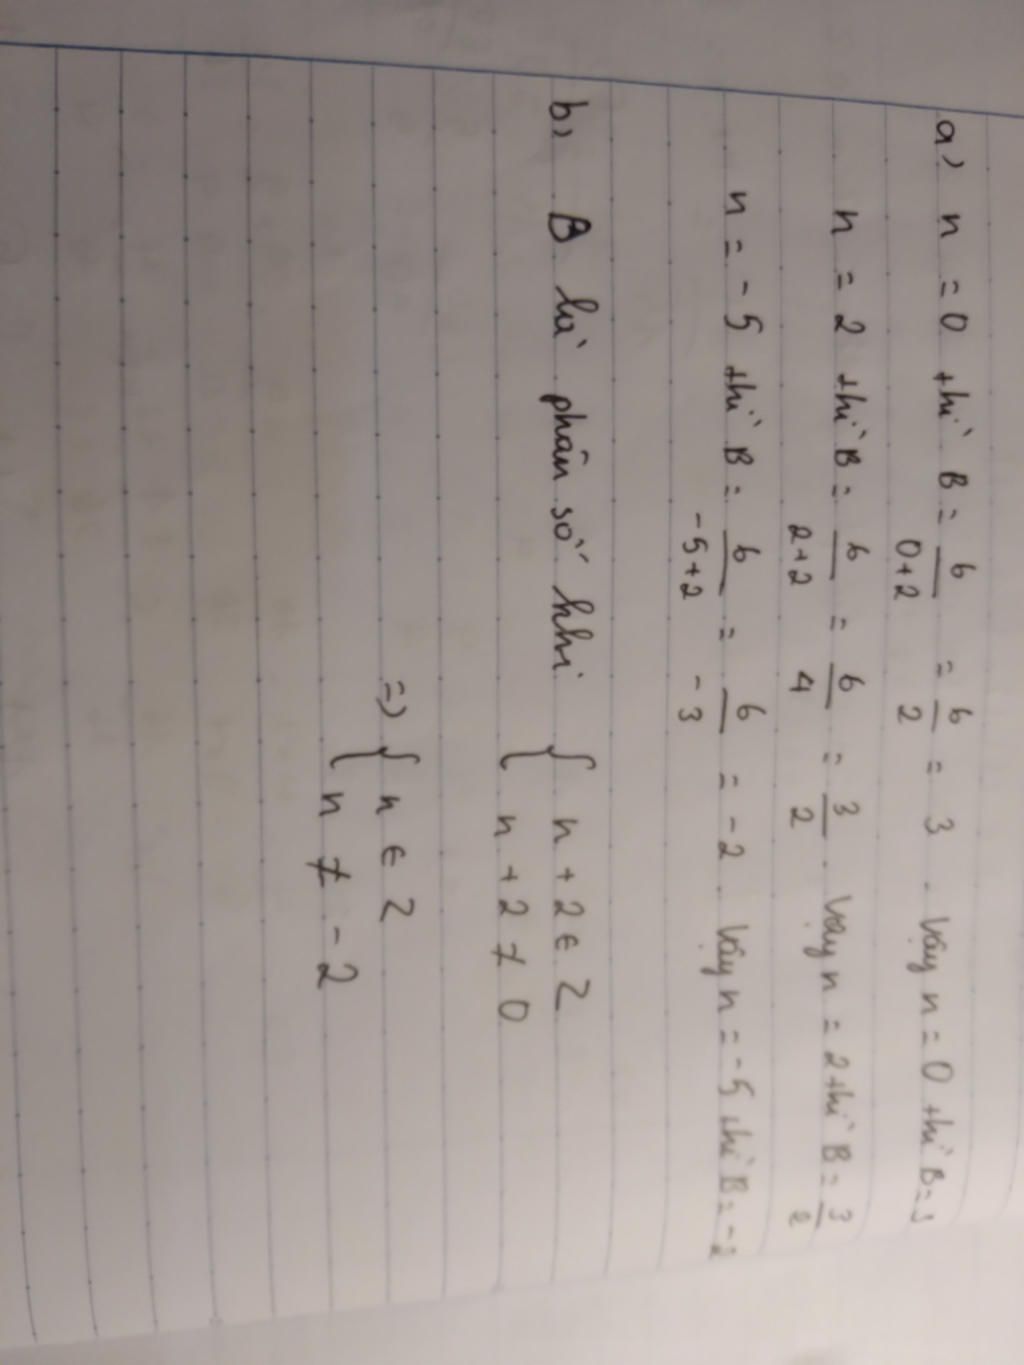 a) n = 0 thì B = 6/0+2 = 6/2 = 3 . Vậy n = 0 thì B = 3
n = 2 thì B = 6/2+2 = 6/4 = 3/2 . Vậy n = 2 thì B = 3/2
n = -5 thì B = 6/-5+2 = 6/-3 = -2 . Vậy n = -5 thì B = -2
b) B là phân số khi { n + 2 ∈ Z
{ n + 2 ≠ 0
=> { n ∈ Z
{ n ≠ -2